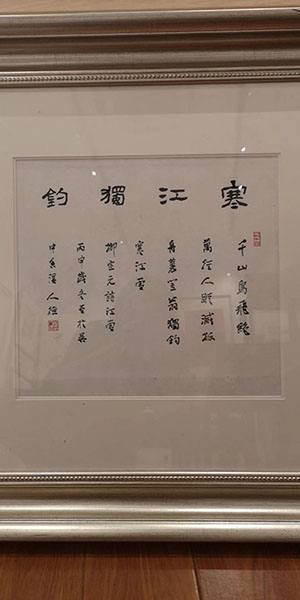 寒江獨釣
千山鳥飛絕
萬徑人蹤滅孤
舟蓑笠翁獨釣
寒江雪
柳宗元詩江雪
丙申歲冬